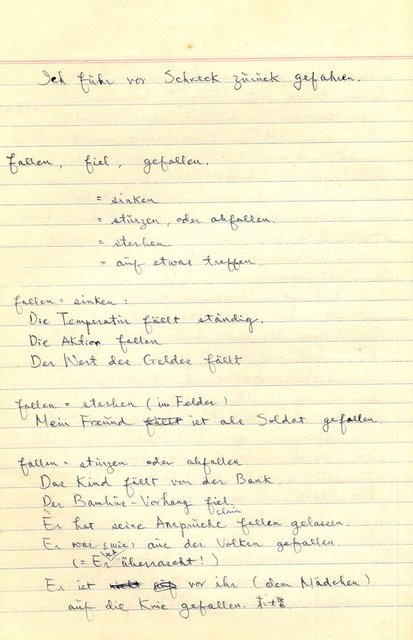 Ich führ vor Schreck zürück gefahren.
fallen, fiel, gefallen.
= sinken
= stürzen, oder abfallen.
= sterben
= auf etwas treffen.
fallen = sinken :
Die Temperatür fällt ständig.
Die Aktion fallen
Der Wert des Geldes fällt
fallen = sterben (im Felder)
Mein Freünd fällt ist als Soldat gefallen.
fallen = stürzen oder abfallen
Das Kind fällt von der Bank.
Der Bambüs-Vorhang fiel.
claim
Er hat seine Ansprüche fallen gelassen.
Er war (wie) aüs der Volken gefallen.
(= Er ist überrascht!)
Er ist nicht auf vor ihr (dem Mädchen)
aüf die Knie gefallen.